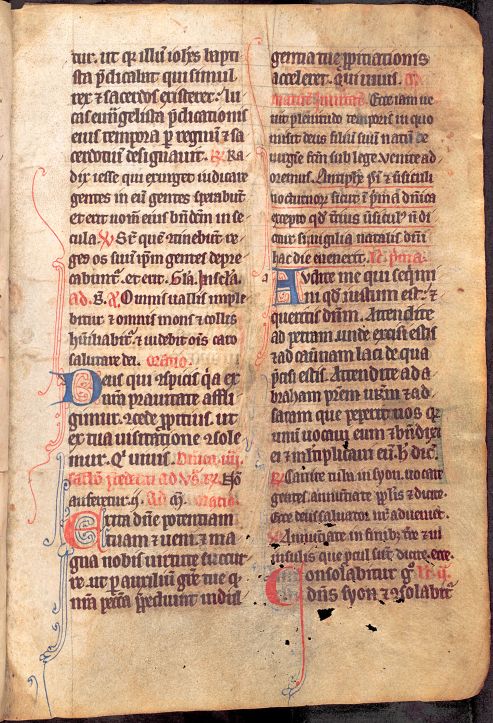 tur. ut qr illū ioħes bapti
sta p̄dicabat qui simul
rex & sacerdos existeret. lu
cas eūgelista p̄dicationis
eius tempora p regnū & sa
cerdotiū designauit. R. Ra
dix iesse qui exurget iudicare
gentes in eū gentes sperabūt
et erit nom̄ eius bn̄dc̄m in se
cula. V. Sr̄ quē ɔtinebūt re
ges os suū ipm̄ gentes depre
cabunt᷑. et erit. Gła.
ad. B. a. Omnis uallis imple
bitur & omnis mons & collis
hūiliabit᷑. & uidebit oīs caro
salutare dei. oratio.
Deus qui ɔspicis qa ex
nr̄a prauitate affli
gimur ɔcede ꝓpitius. ut
ex tua uisitatione ɔsole
mur. Qi uiuis.
Nō
auferetur. Ad. oratio.
Excita dn̄e potentiam
tuam & ueni. & ma
gna nobis uirtute succur
re. ut p auxiliū gr̄e tue q
nr̄a pctā p̄pediunt indul
gentia tue ꝓpitiationis
acceleret. Qui uiuis.
Ecce iam ue
nit plenitudo temporis in quo
misit deus filiū suū natū de
uirgīe fcm̄ sub lege. Venite ad
oremus. Antiphe ps̄i & uersiculi
nocturnor sicut ī pma dn̄ica
excepto qd tercius uersiculus n̄ di
citur si uigilia natalis dn̄i
hac die euenerit.
Audite me qui seqmi
ni qd iustum est. &
queritis dn̄m. Attendite
ad petram unde excisi estis
& ad cauernam laci de qua
p̄cisi estis. Attendite ad a
braham prem ur̄m & ad
saram que peperit uos qr
unū uocaui eum & bn̄dixi
ei & mltiplicaui eū. h̄ dic̄.
R. Canite tuba in syon. uocate
gentes. annunciate ppłis & dicite.
Ecce deus saluator nr̄ adueniet.
V. Annunciate in finib; tr̄e & in
insulis que pcul sūt dicite. ecce.
Consolabitur gͦ
dn̄s syon & ɔsolabit᷑